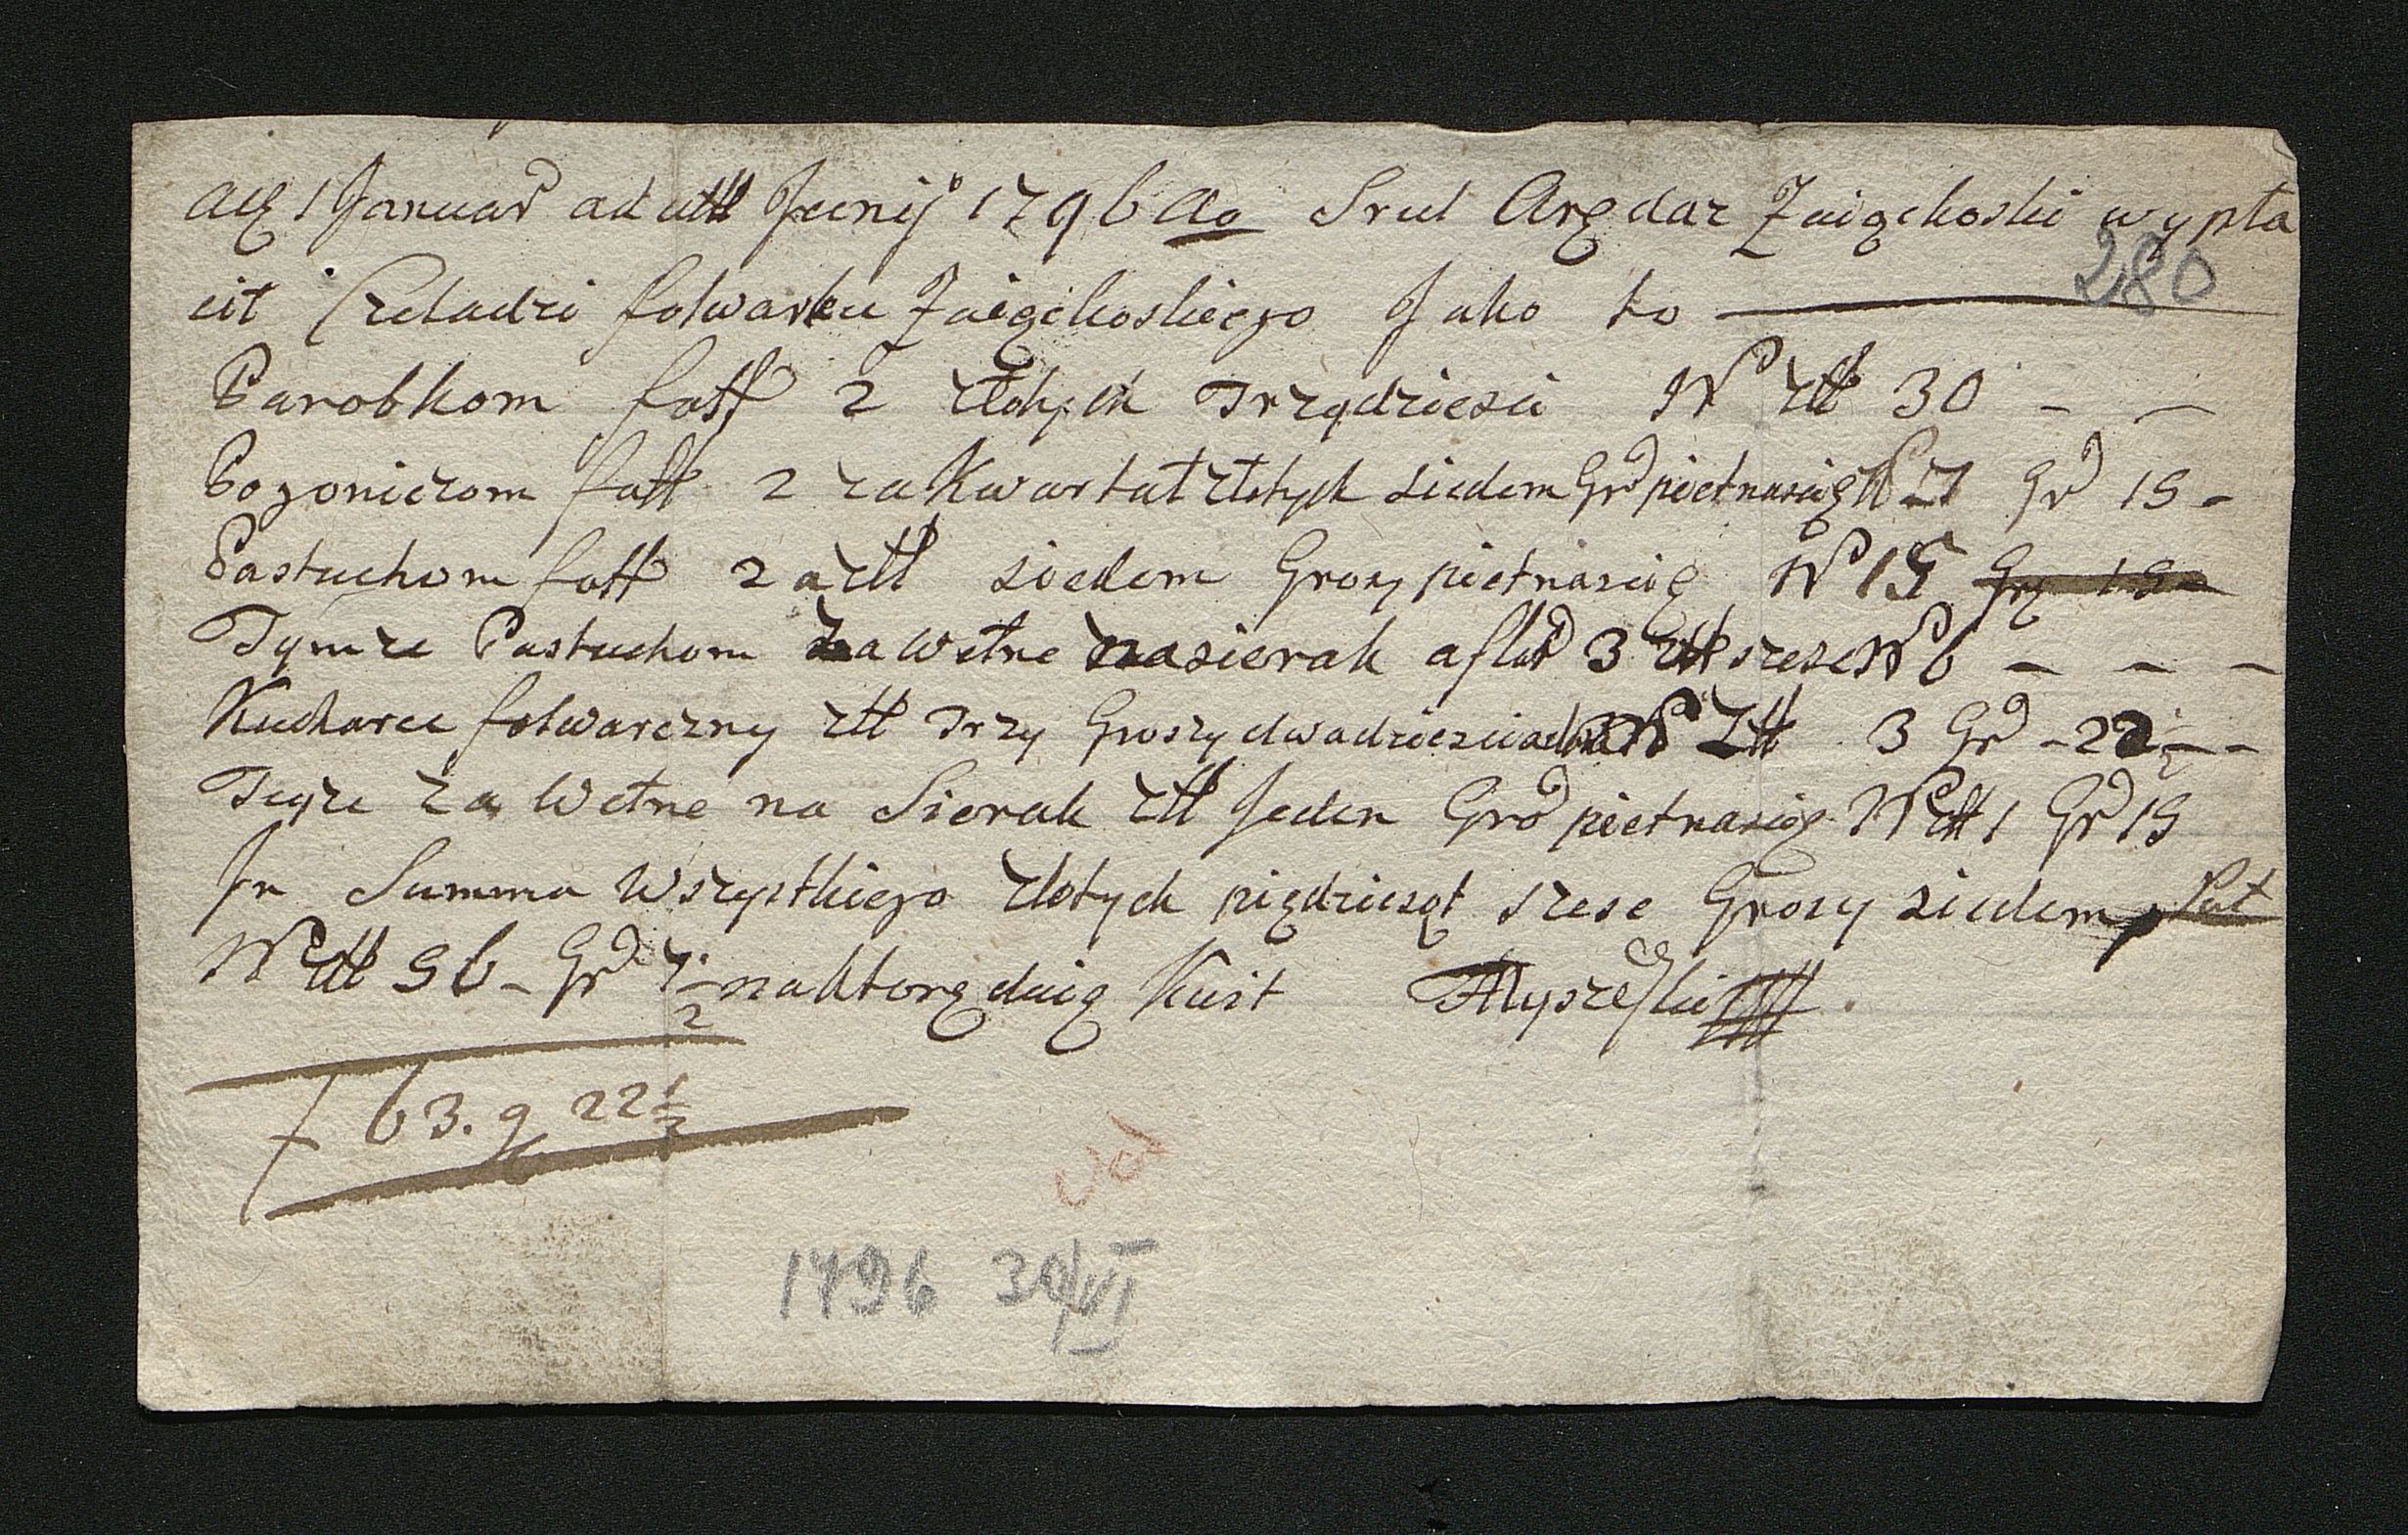 a 1 Januar ad ult Junij 1796 Ao Srul Arędarz Zaiączkoski wypła
cił Czeladzi folwarku Zaiączkoskiego Jako to
280
Parobkom fatt 2 złotych Trzydziesci N złł 30 - -
Pogoniczom fatt 2 za Kwartał złotych siedem Gr pietnascie N 7 Gr 15 -
Pastuchom fatt 2 a złł siedem Groszy pietnascie N 15 Gr 15 -
Tymze Pastuchom za wełne na sierak a flor 3 złł szesc N 6 - - -
Kucharce folwarczny złł Trzy Groszy dwadziescia dwa N Złł 3 Gr - 22 1/2 - -
Teyze za Wełne na Sierak złł Jeden Gro pietnascie N złł 1 Gr 15
In Summa Wszystkiego złotych pięcdziesąt szesc Groszy siedem puł
N złł 56 - Gr 7 1/2 na ktorą daię Kwit Myszeski
f 63. g 22 1/2
1796 30/VI